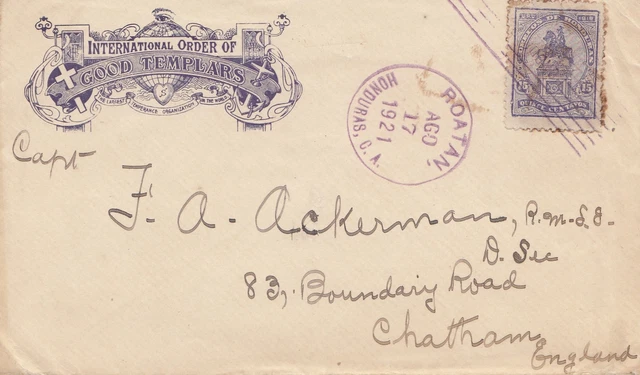 INTERNATIONAL ORDER OF
GOOD TEMPLARS
THE LARGEST TEMPERANCE ORGANIZATION IN THE WORLD
ROATAN,
AGO
17
1921
HONDURAS, C. A.
DE HONDURAS
15 15
QUINCE CENTAVOS
Capt
F. A. Ackerman, R.M.S.I.
D. Sec
83, Boundary Road
Chatham
England